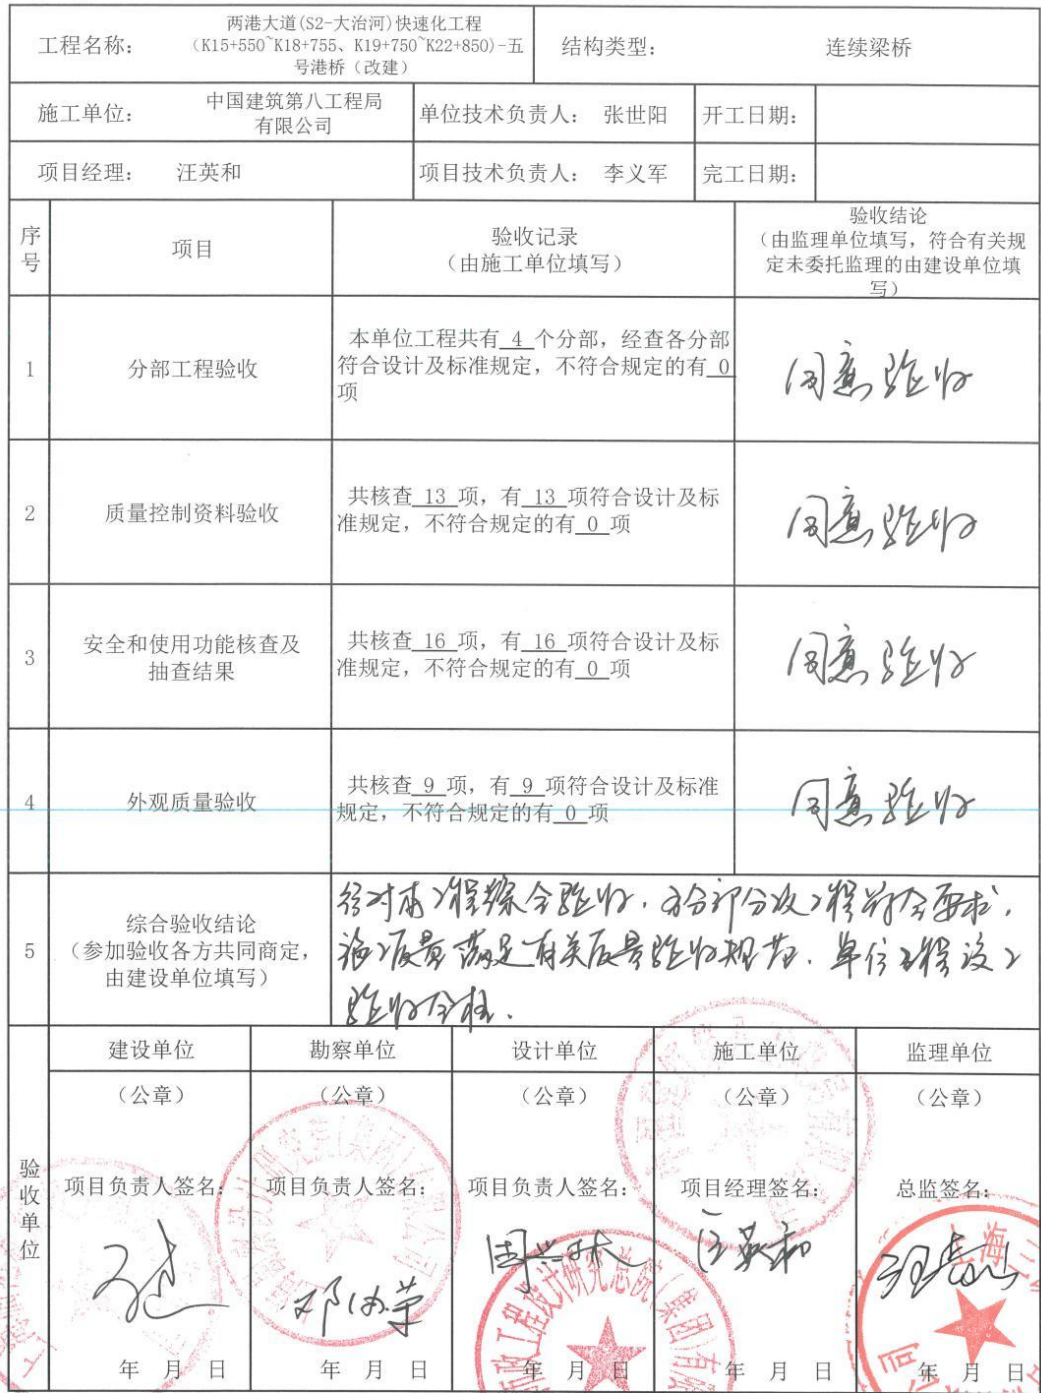 工程名称：
两港大道(S2-大治河)快速化工程
（K15+550~K18+755、K19+750~K22+850)-五
号港桥（改建）
结构类型：
连续梁桥
施工单位：
中国建筑第八工程局
有限公司
单位技术负责人： 张世阳
开工日期：
项目经理： 汪英和
项目技术负责人： 李义军
完工日期：
序
号
项目
验收记录
（由施工单位填写）
验收结论
（由监理单位填写，符合有关规
定未委托监理的由建设单位填
写）
1
分部工程验收
本单位工程共有 4 个分部，经查各分部
符合设计及标准规定，不符合规定的有 0
项
同意验收
2
质量控制资料验收
共核查 13 项，有 13 项符合设计及标
准规定，不符合规定的有 0 项
同意验收
3
安全和使用功能核查及
抽查结果
共核查 16 项，有 16 项符合设计及标
准规定，不符合规定的有 0 项
同意验收
4
外观质量验收
共核查 9 项，有 9 项符合设计及标准
规定，不符合规定的有 0 项
同意验收
5
综合验收结论
（参加验收各方共同商定，
由建设单位填写）
经对本工程综合验收，各分部分项工程符合要求，
施工质量满足有关质量验收规范，单位工程竣工
验收合格．
验
收
单
位
建设单位
勘察单位
设计单位
施工单位
监理单位
（公章）
（公章）
（公章）
（公章）
（公章）
项目负责人签名：
项目负责人签名：
项目负责人签名：
项目经理签名：
总监签名：
汪英和
年 月 日
年 月 日
年 月 日
年 月 日
年 月 日
市政工程设计研究总院(集团)有限